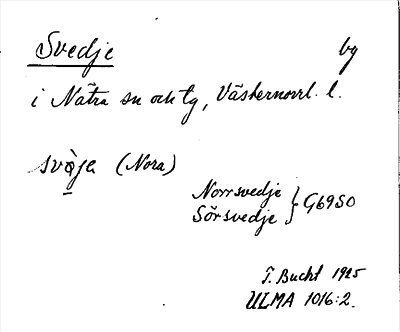 Svedje by
i Nätra sn och tg, Västernorrl. l.
svò̱ja (Nora)
Norrsvedje } G69SO
Sörsvedje
T. Bucht 1925
ULMA 1016:2.